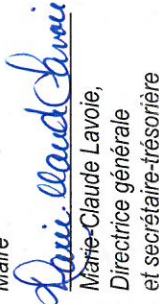 Maire
Marie-Claude Lavoie
Marie-Claude Lavoie,
Directrice générale
et secrétaire-trésorière